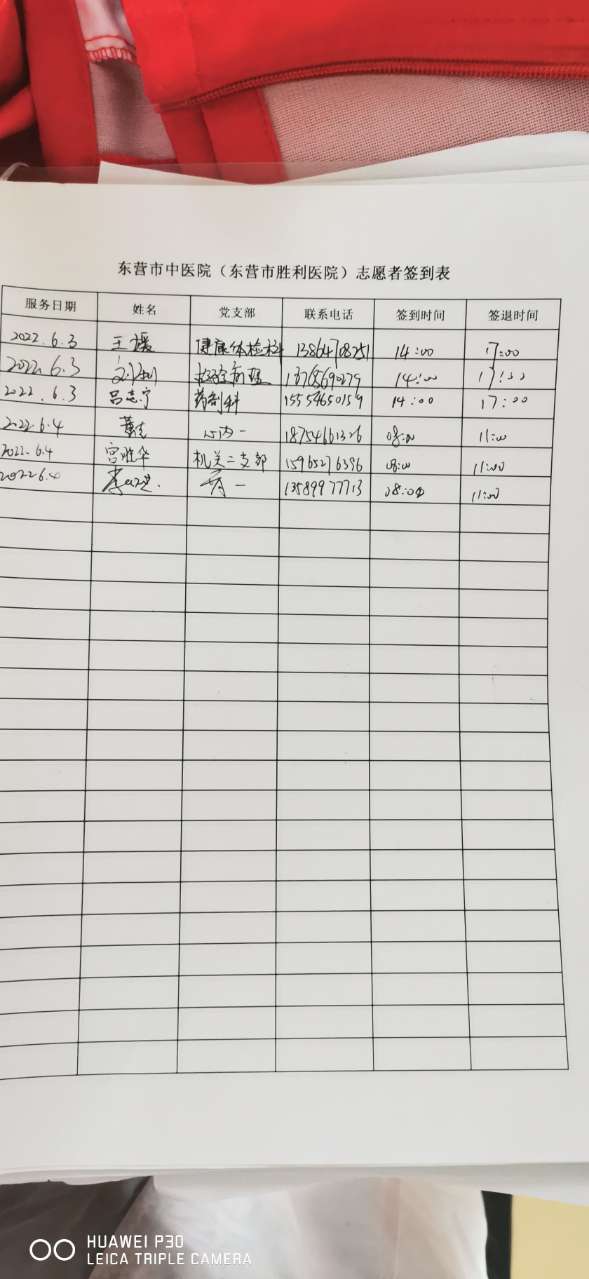 东营市中医院（东营市胜利医院）志愿者签到表
服务日期 姓名 党支部 联系电话 签到时间 签退时间
2022.6.3 王媛 健康体检科 13864708751 14:00 17:00
2022.6.3 检验病理 14:00 17:00
2022.6.3 吕志宁 药剂科 15554650159 14:00 17:00
2022.6.4 心内一 18754661326 08:00 11:00
2022.6.4 宫胜华 机关二支部 15965276396 08:00 11:00
2022.6.4 13589977713 08:00 11:00
HUAWEI P30
LEICA TRIPLE CAMERA